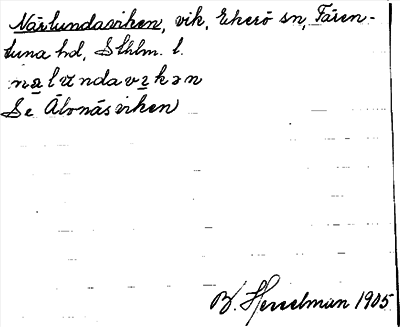 Närlundaviken, vik, Ekerö sn, Fären-
tuna hd, Sthlm. l.
nalundavikən
Se Älvnäsviken
B. Hesselman 1905